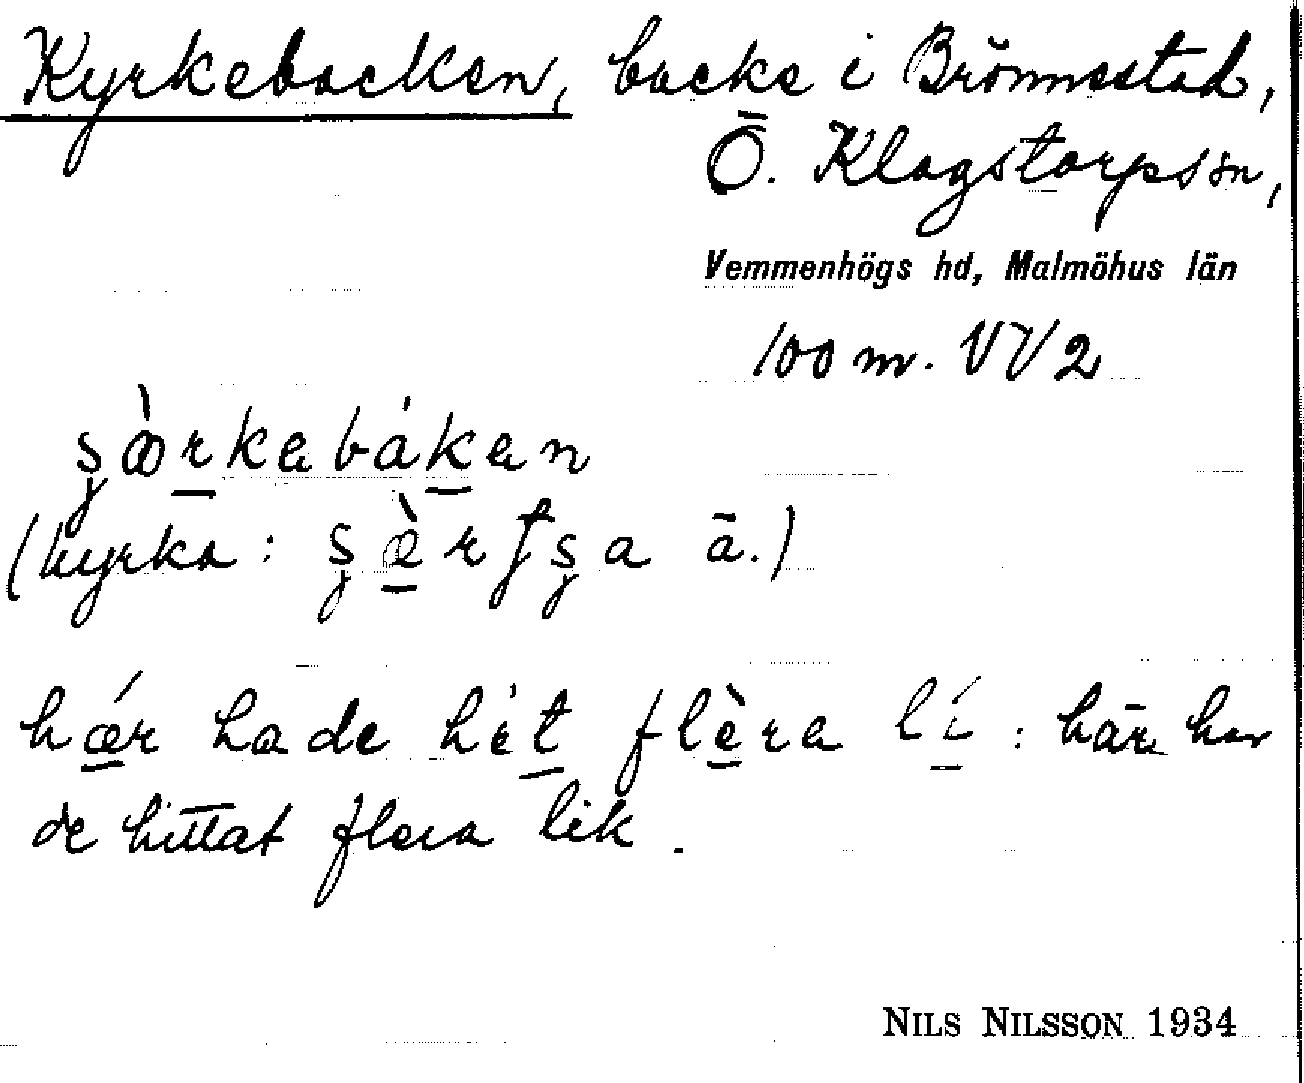 Kyrkebacken, backe i Brönnestad,
Ö. Klagstorps sn,
Vemmenhögs hd, Malmöhus län
100 m. VV2
(kyrka: a.)
hær ha de hét flèra lí : här har
de hittat flera lik.
NILS NILSSON 1934